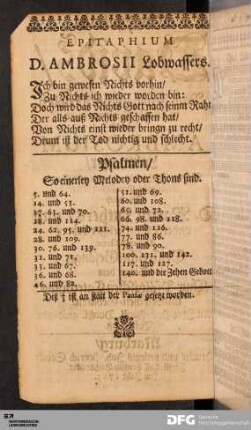 EPITAPHIUM
D. AMBROSII Lobwassers.
Ich bin gewesen Nichts vorhin/
Zu Nichts ich wieder worden bin:
Doch wird das Nichts Gott nach seinm Raht
Der alls auß Nichts geschaffen hat/
Von Nichts einst wieder bringn zu recht/
Drum ist der Tod nichtig und schlecht.
Psalmen/
So einerley Melodey oder Thons sind.
5. und 64.
14. und 53.
17. 63. und 70.
18. und 144.
24. 62. 95. und 111.
28. und 109.
30. 76. und 139.
31. und 71.
33. und 67.
36. und 68.
46. und 82.
51. und 69.
60. und 108.
65. und 72.
66. 98. und 118.
74. und 116.
77. und 86.
78. und 90.
100. 131. und 142.
117. und 127.
140. und die Zehen Gebott
Diß † ist an statt der Pausa gesetzt worden.
DFG